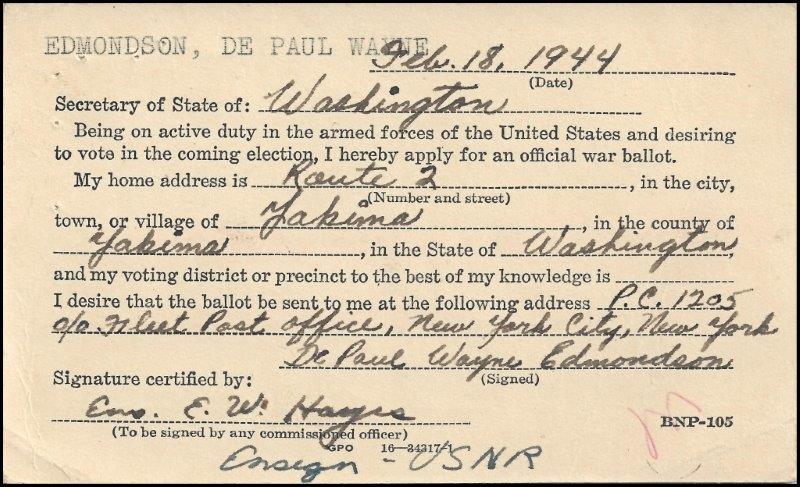 EDMONDSON, DE PAUL WAYNE
Feb. 18, 1944
(Date)
Secretary of State of: Washington
Being on active duty in the armed forces of the United States and desiring
to vote in the coming election, I hereby apply for an official war ballot.
My home address is Route 2, in the city,
(Number and street)
town, or village of Yakima, in the county of
Yakima, in the State of Washington,
and my voting district or precinct to the best of my knowledge is
I desire that the ballot be sent to me at the following address P.C. 1205
c/o Fleet Post office, New York City, New York
De Paul Wayne Edmondson
Signature certified by:
(Signed)
Ens. E. W. Hayes
(To be signed by any commissioned officer)
BNP-105
GPO 16—34317-1
Ensign - USNR